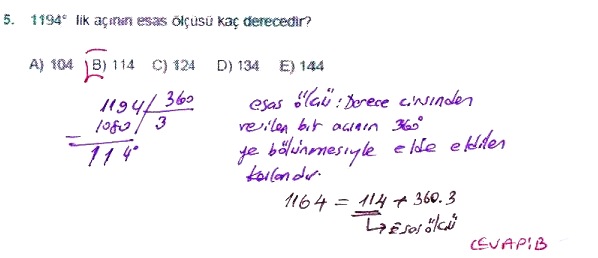 5. 1194° lik açının esas ölçüsü kaç derecedir?
A) 104 B) 114 C) 124 D) 134 E) 144
1194 / 360
1080 / 3
114°
esas ölçü : Derece cinsinden
verilen bir açının 360°
ye bölünmesiyle elde edilen
kalandır.
1164 = 114 + 360.3
↳ Esas ölçü
CEVAP: B